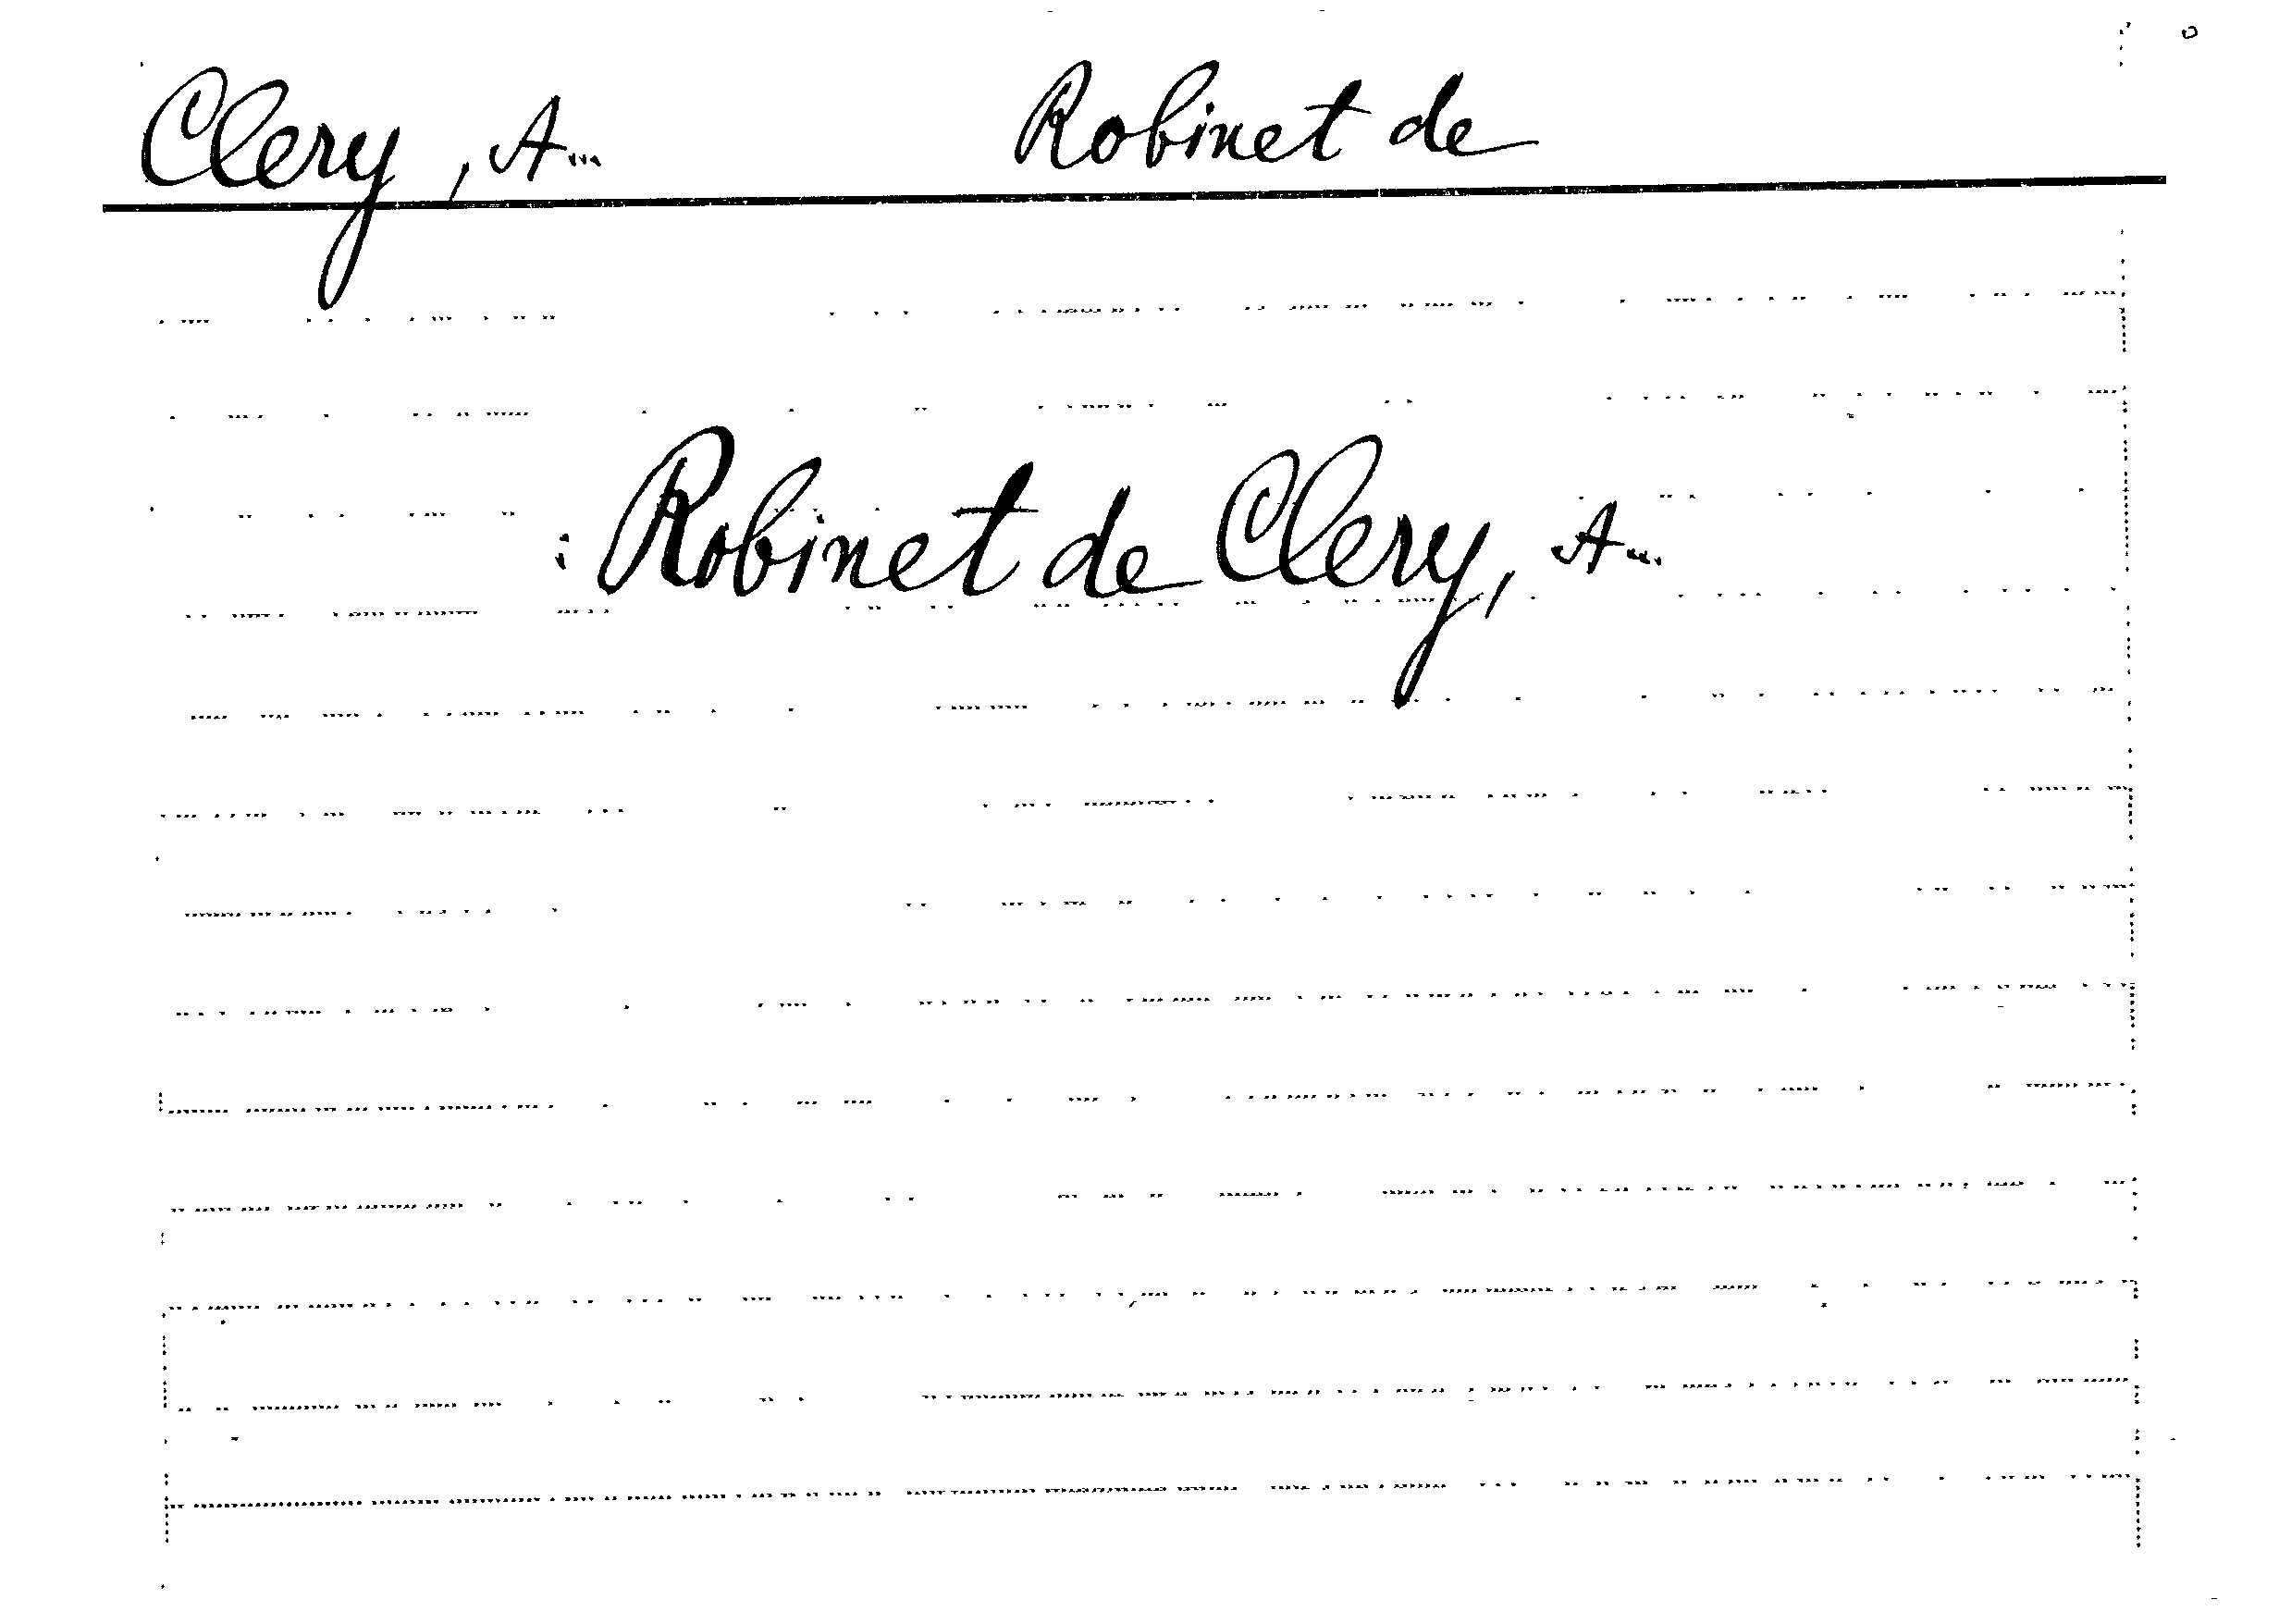 Clery, A... Robinet de
: Robinet de Clery, A...